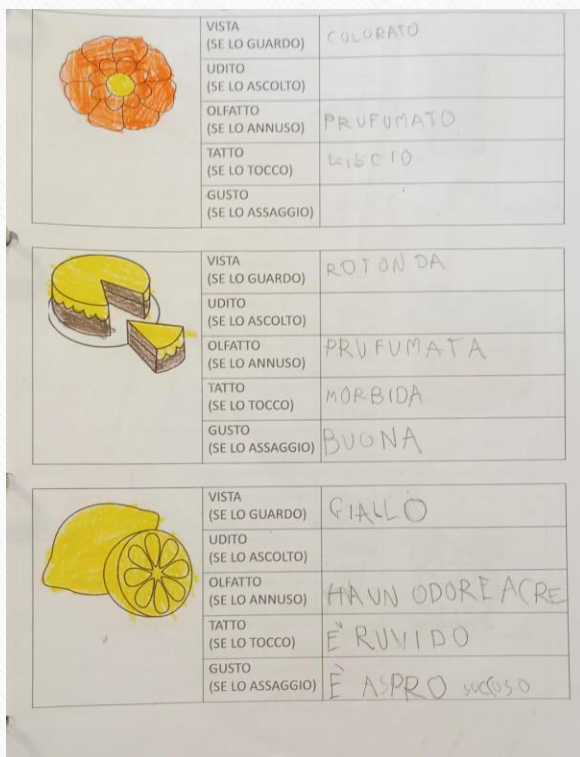 VISTA
(SE LO GUARDO)
COLORATO
UDITO
(SE LO ASCOLTO)
OLFATTO
(SE LO ANNUSO)
PRUFUMATO
TATTO
(SE LO TOCCO)
LISCIO
GUSTO
(SE LO ASSAGGIO)
VISTA
(SE LO GUARDO)
ROTONDA
UDITO
(SE LO ASCOLTO)
OLFATTO
(SE LO ANNUSO)
PRUFUMATA
TATTO
(SE LO TOCCO)
MORBIDA
GUSTO
(SE LO ASSAGGIO)
BUONA
VISTA
(SE LO GUARDO)
GIALLO
UDITO
(SE LO ASCOLTO)
OLFATTO
(SE LO ANNUSO)
HA UN ODORE ACRE
TATTO
(SE LO TOCCO)
E' RUVIDO
GUSTO
(SE LO ASSAGGIO)
È ASPRO SUCCOSO